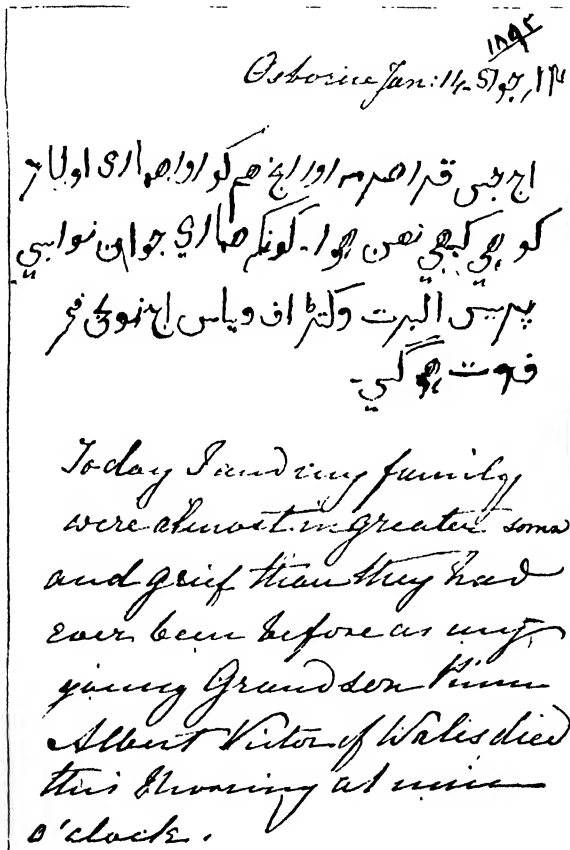 ۱۸۹۲
Osborne Jan: 14. ۱۴
اج جس قدر اور هم کو اور هماری اولاد
کو کبھی نہیں ہوا۔ هماری جوان نواسی
پرنس البرت وکٹر اف ویلس اج نو بجی
فوت ہو گی۔
Today I and my family
were almost in greater
and grief than they had
ever been before as my
young Grandson
Albert Victor of Wales died
this Morning at nine
o'clock.